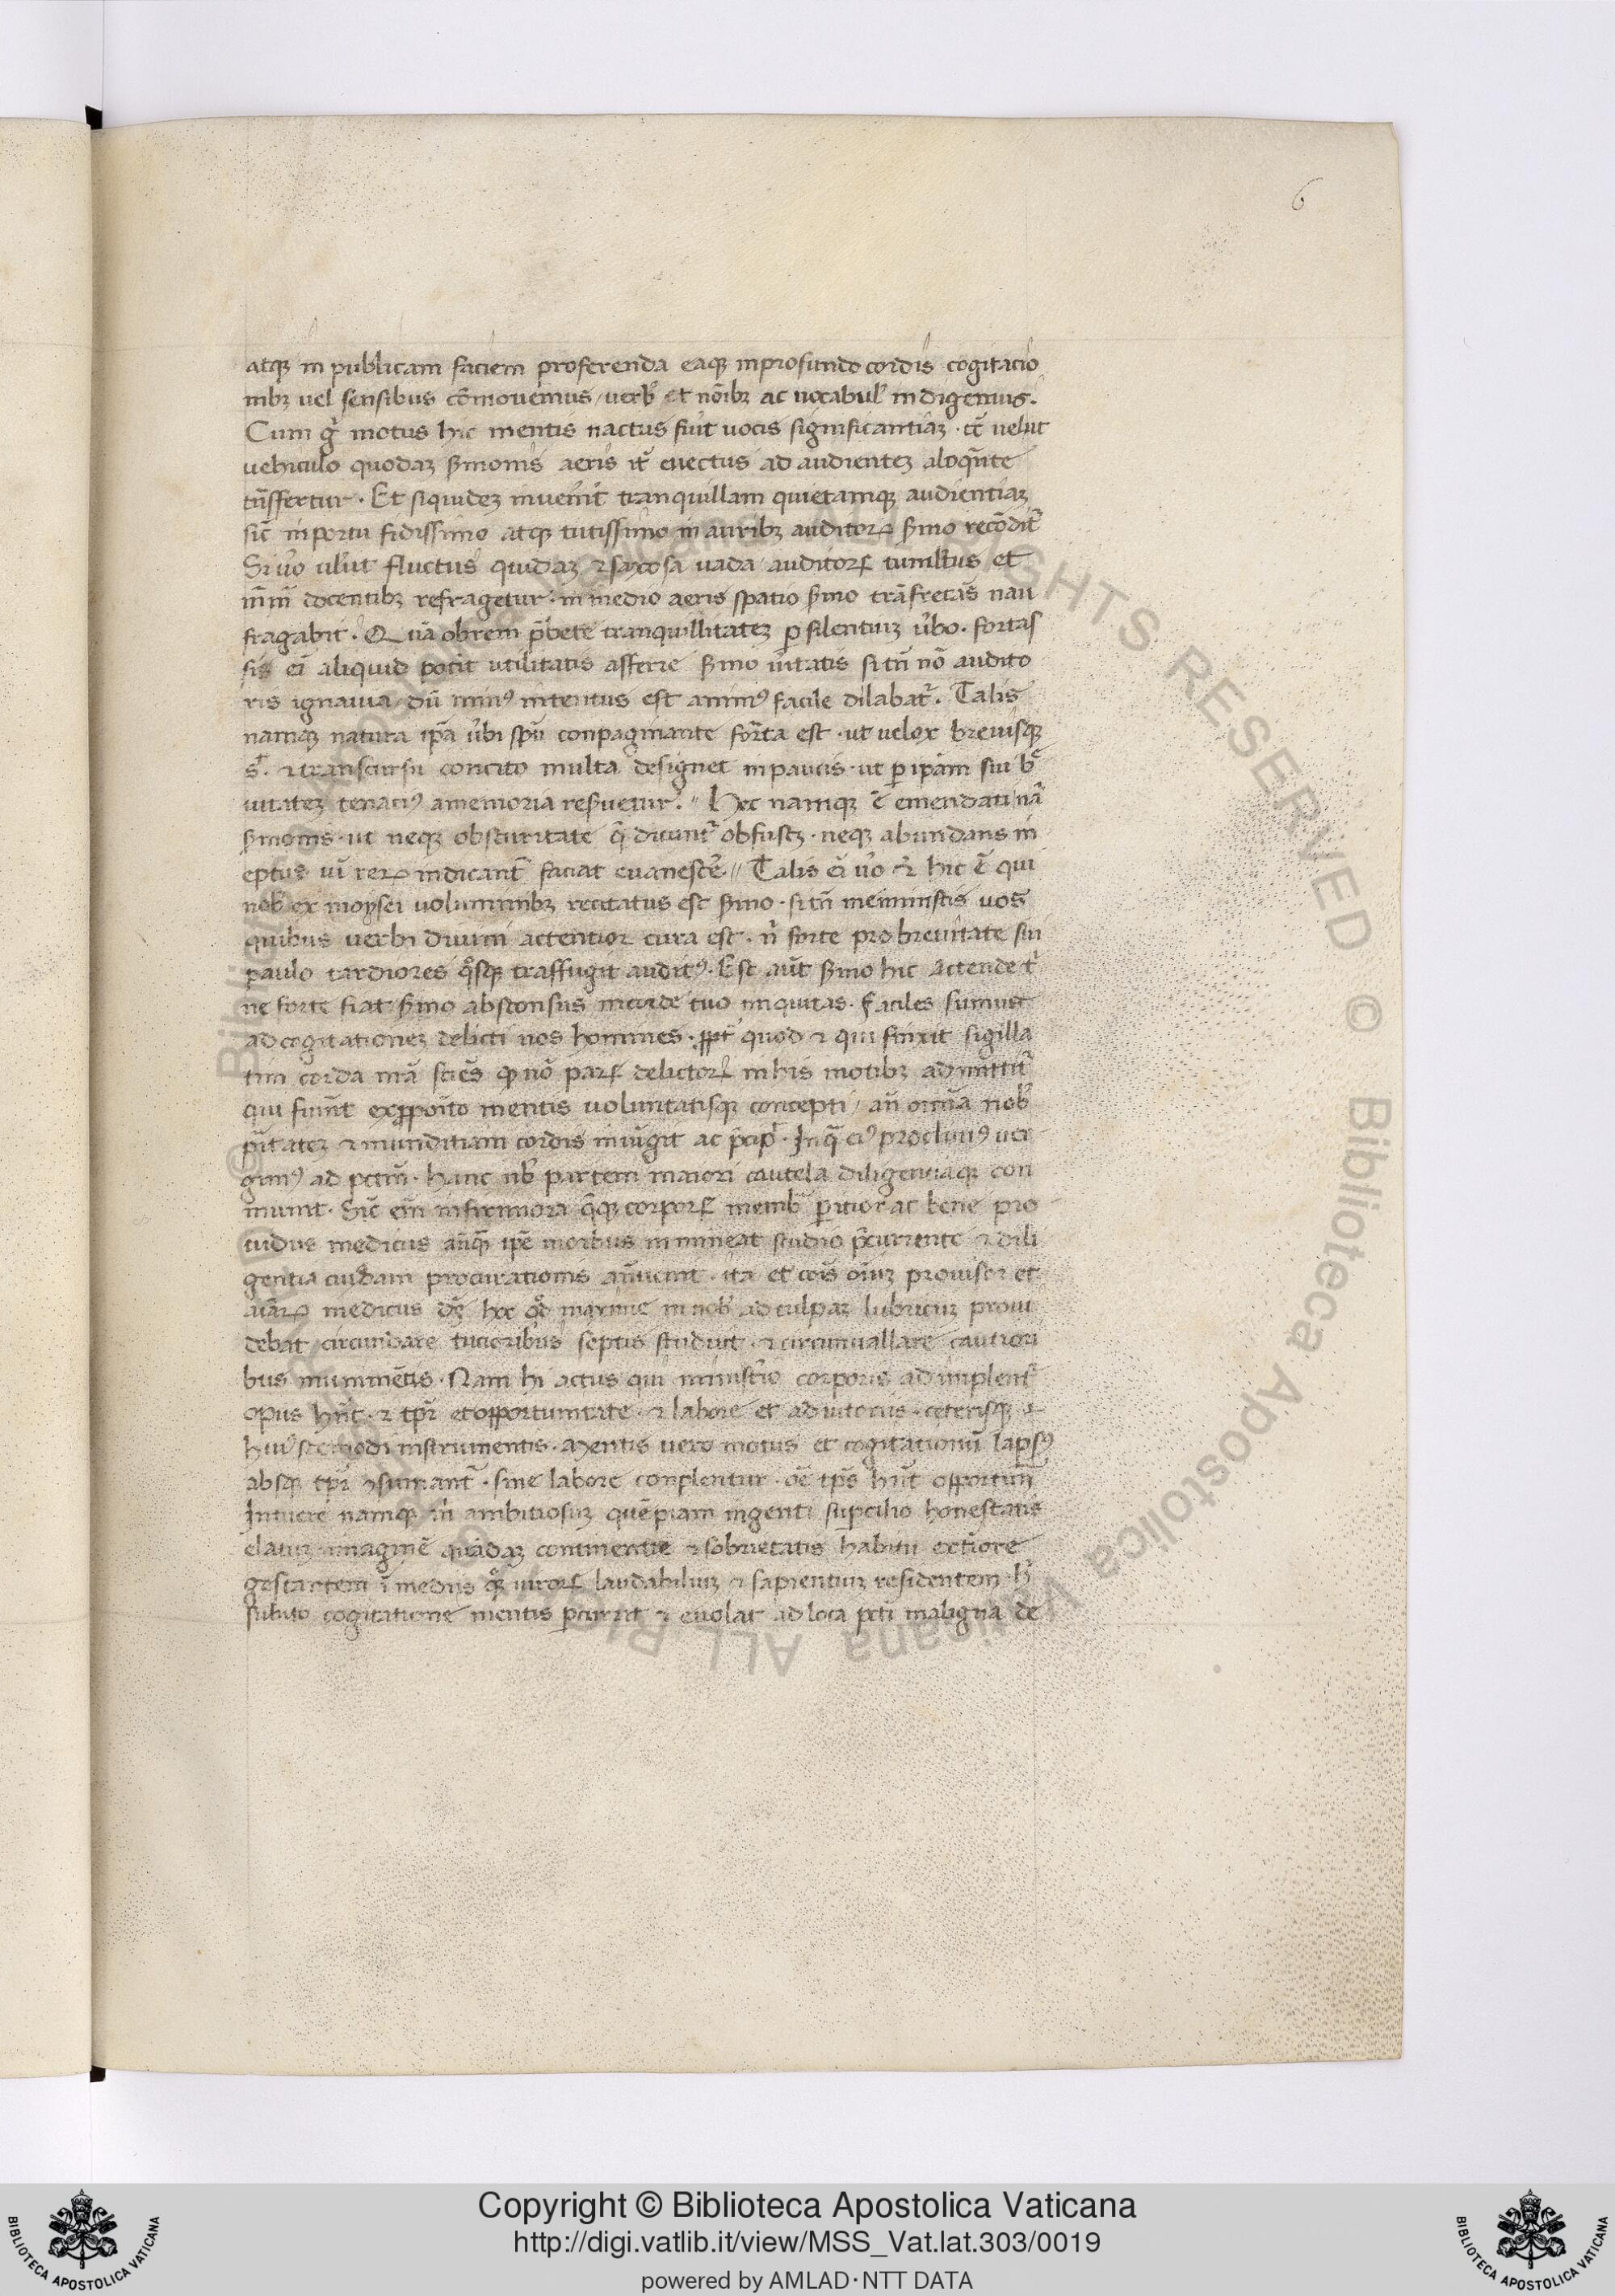 6
atqꝫ in publicam faciem proferenda eaqꝫ in profundo cordis cogitacio
nibꝫ uel sensibus cōmouemus / uerb̾ et nōibꝫ ac uocabul̾ indigemus.
Cum g̾ motus hic mentis nactus fiūt uocis significantiaꝫ · tc̄ uelut
uehiculo quodaꝫ s̾monis aeris it̾ euectus ad audienteꝫ a loq̄nte
tn̄sfertur · Et siquideꝫ inuen̾it tranquillam quietamqꝫ audientiaꝫ
sic̄ in portu fidissimo atqꝫ tutissimo in auribꝫ auditoꝝ s̾mo recōdit̾
Si ūo ul̾ut fluctus quidaꝫ ⁊ saxosa uada auditoꝝ tumltus et
docentibꝫ refragetur · in medio aeris spatio s̾mo trāsfretās nau
fragabit. Quāobrem p̄bete tranquillitateꝫ p̱ silentiuꝫ ūbo. fortas
sis ei̅ aliquid pot̾it utilitatis afferre s̾mo ūitatis si tn̄ nō audito
ris ignauia / dū min᾽ intentus est anim᾽ facile dilabat̾. Talis
namqꝫ natura ip̄a ūbi sp̄u conpaginante for̄ta est · ut uelox breuisqꝫ
s̄ · ⁊ transcursu concito multa designet in paucis · ut p̱ ipām sui b̾
uitateꝫ tenaci᾽ a memoria res̾uetur. // Hec namqꝫ ē emendati nā
s̾monis · ut neqꝫ obscuritate q̄ dicunt̾ obfuscꝫ · neqꝫ abundans in
eptus ui̅ reꝝ indicant̄ faciat euanesce̾. // Talis ei̅ ūo ⁊ hic ē qui
nob̾ ex moysei uoluminibꝫ recitatus est s̾mo · si tn̄ meministis uos
quibus uerbi diuini attentior cura est · n̾ forte pro breuitate sui
paulo tardiores q̊sqꝫ traffugit audit᾽. Est aūt s̾mo hic Attende t̾
ne forte fiat s̾mo absconsus in corde tuo iniquitas. Faciles sumus
ad cogitationeꝫ delicti nos homines · p̱pt̾ quod ⁊ qui finxit sigilla
tim corda nr̄a sciēs qꝫ nō pars delictoꝝ in his motibꝫ admittit̾
qui fiunt ex p̱po̾ito mentis uoluntatisqꝫ concepti / an̄ omīa nob̾
p̄itateꝫ ⁊ munditiam cordis iniu̅git ac p̄cip̾ · In q̄ ei᾽ procliui᾽ uer
gim᾽ ad pctm̄ · hanc nb̾ partem maiori cautela diligentiaqꝫ con
munit. Sic̄ eīm infirmiora q̄qꝫ corporꝭ memb̾ peritior ac bene pro
uidus medicus an̄qꝫ ipē morbus inmineat studio p̄currente ⁊ dili
gentia cuiusdam procurationis an̄uenit · ita et cōis oīuꝫ prouisor et
aīaꝝ medicus dē hoc qd̾ maxime in nob̾ ad culpaꝫ lubricuꝫ proui
debat circundare tutioribus septis studuit · ⁊ circunuallare cautiori
bus munimētis · Nam hi actus qui minist̾io corporis adimplent̾
opus hn̄t · ⁊ tp̄r et opportunitate · ⁊ labore et adiutoriis · ceterisqꝫ ⁊
hui᾽scemodi instrumentis. Mentis uero motus et cogitationū laps᾽
absqꝫ tp̄r ꝯsumant̾ · sine labore conplentur · oē tp̄s hn̄t opportun̄
Intuere namqꝫ m̾ ambitiosuꝫ quēpiam ingenti sup̱cilio honestatis
elatuꝫ imaginē quādaꝫ continentie ⁊ sobrietatis habitu ext̾iore
gestantem i̅ mediis q̊ꝫ uiroꝝ laudabiliuꝫ ⁊ sapientiuꝫ residentem · h̾
subito cogitatione mentis p̱currit ⁊ euolat ad loca pcti̅ maligna de
Copyright © Biblioteca Apostolica Vaticana
http://digi.vatlib.it/view/MSS_Vat.lat.303/0019
powered by AMLAD·NTT DATA
BIBLIOTECA APOSTOLICA VATICANA
BIBLIOTECA APOSTOLICA VATICANA
© Biblioteca Apostolica Vaticana ALL RIGHTS RESERVED